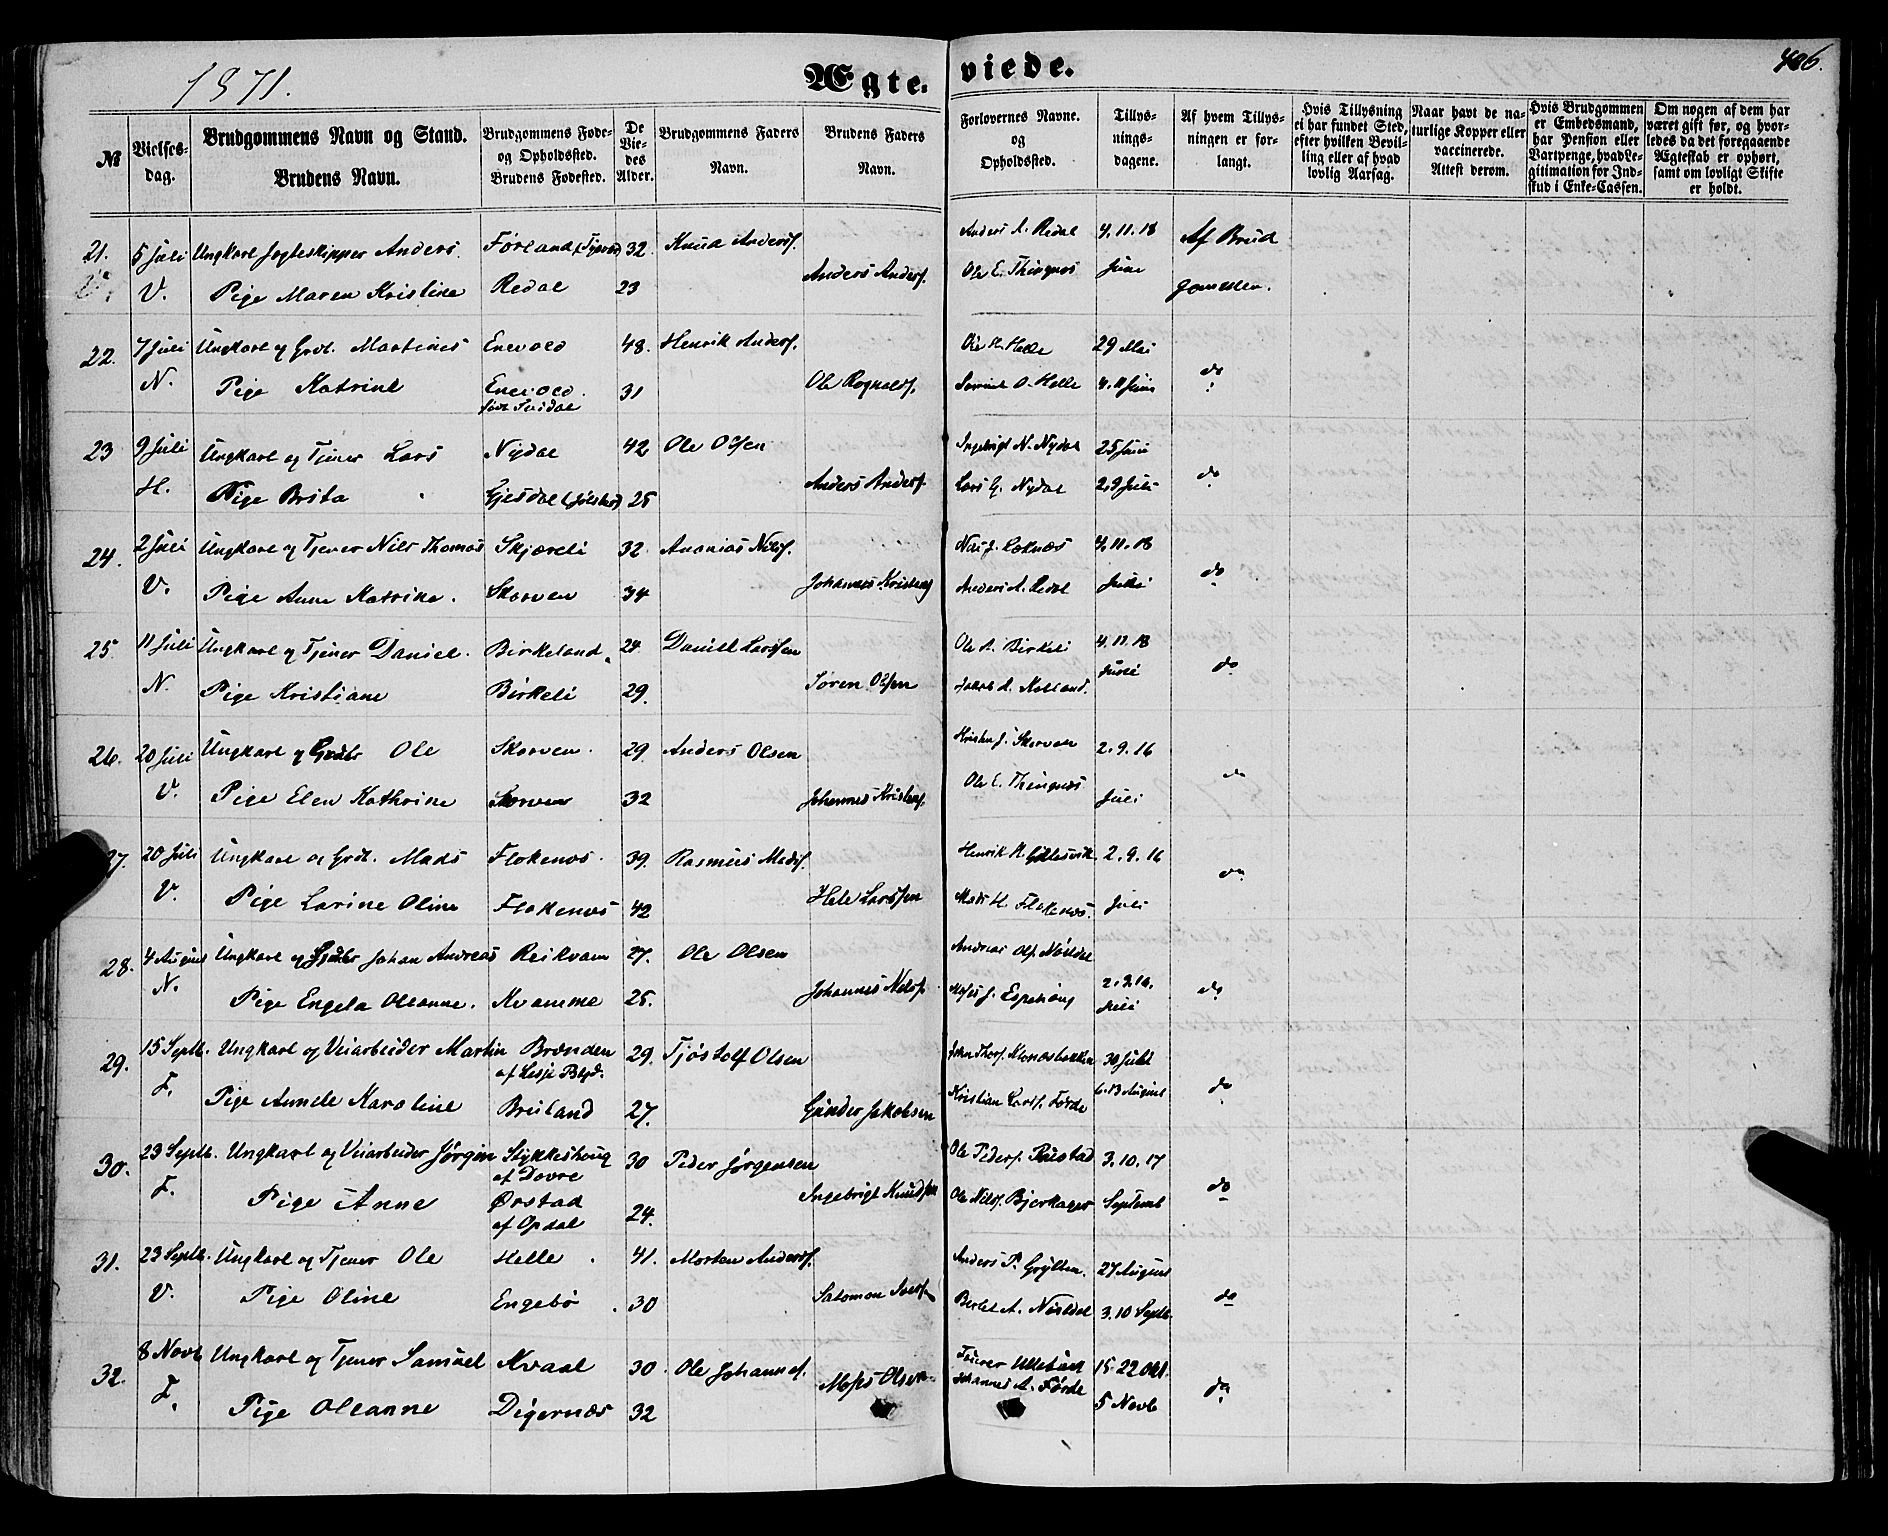 1871.
Ægte- viede.
406.
№
Vielses-dag.
Brudgommens Navn og Stand.
Brudens Navn.
Brudgommens Føde- og Opholdssted.
Brudens Fødested.
De Vie-des Alder.
Brudgommens Faders Navn.
Brudens Faders Navn.
Forlovernes Navne. og Opholdssted.
Tillys-nings-dagene.
Af hvem Tillys-ningen er for-langt.
Hvis Tillysning ei har fundet Sted, efter hvilken Bevil-ling eller af hvad lovlig Aarsag.
Naar havt de na-turlige Kopper eller vaccinerede. Attest derom.
Hvis Brudgommen er Embedsmand, har Pension eller Vartpenge, hvad Le-gitimation for Ind-skud i Enke-Cassen.
Om nogen af dem har været gift før, og hvor-ledes da det foregaaende Ægteskab er ophørt, samt om lovligt Skifte er holdt.
21. 5 Juli Ungkarl Jægteskipper Anders Førland 32 Knud Anders. Anders A. Redal 4.11.18 Af Brud
V. Pige Maren Kristine Redal 23 Anders Anders. Ole E. Thingnes Juni gommen.
22. 7 Juli Ungkarl og Grdr. Martinus Enevold 48. Henrik Anders. Ole H. Helle 29 Mai
N. Pige Katrine Enevold 31 Ole Rognalds. O. Helle 4.11 Juni do
23 9 Juli Ungkarl og Tjener Lars Nydal 42 Ole Olsen Ingebrigt N. Nydal 25 Juni
H. Pige Brita Gjesdal (Jølster) 25 Anders Anders. Lars G. Nydal 2.9 Juli do
24. 2 Juli Ungkarl og Tjener Nils Thomas Skjærli 32 Ananias Nils. 4.11.18
V. Pige Anne Katrine. Skorven 34 Johannes Anders A. Redal do
25 11 Juli Ungkarl og Tjener Daniel. Birkeland 24 Daniel Larssen Ole A. Birkeli 4.11.18
N. Pige Kristiane Birkeli 29. Søren Olsen Jakob A. do
26. 20 Juli Ungkarl og Grdbr Ole Skorven. 29. Anders Olsen J. Skorven 2.9.16
V. Pige Elen Kathrine Skorven 32 Johannes Ole E. Thingnes Juli do
27. 20 Juli Ungkarl og Grdr. Mads Flokenes. 39. Rasmus Mads. Henrik H. 2.9.16
V. Pige Larine Oline Flokenes 42 Larssen Mads H. Flokenes. Juli do
28. 4 August Ungkarl og Grdbr Johan Andreas Reikvam 27. Ole Olsen Andreas Ols.
N. Pige Engela Oleanne. Kvamme 25. Johannes Nils. J. Espehøug 2.9.16. do
29. 15 Septb. Ungkarl og Veiarbeider Martin Brænden 29. Tjøstolf Olsen
af Lesje
F. Pige Annele Karoline Breiland 27. Gunder Jakobsen Kristian Lars. Førde 6.13 August do
30. 23 Septb. Ungkarl og Veiarbeider Jørgen Stykkeshoug 30 Peder Jørgensen Ole Peders. 3.10.17
af Dovre
F. Pige Anne Ørstad 24. Ingebrigt Knudsen Ole Nils. Bjerkager Septemb do
af Opdal
31. 23 Septb. Ungkarl og Tjener Ole Helle. 41. Morten Anders. Anders P. Grytten. 27 August
V. Pige Oline Engebø. 30 Salomon A. 3.10 Septb. do
32. 8 Novb Ungkarl og Tjener Samuel Kvaal 30. Ole Johann s. 15.22 Okt.
Johannes A. Førde
F. Pige Oleanne Digernæs 32 Olsen 5 Novb do